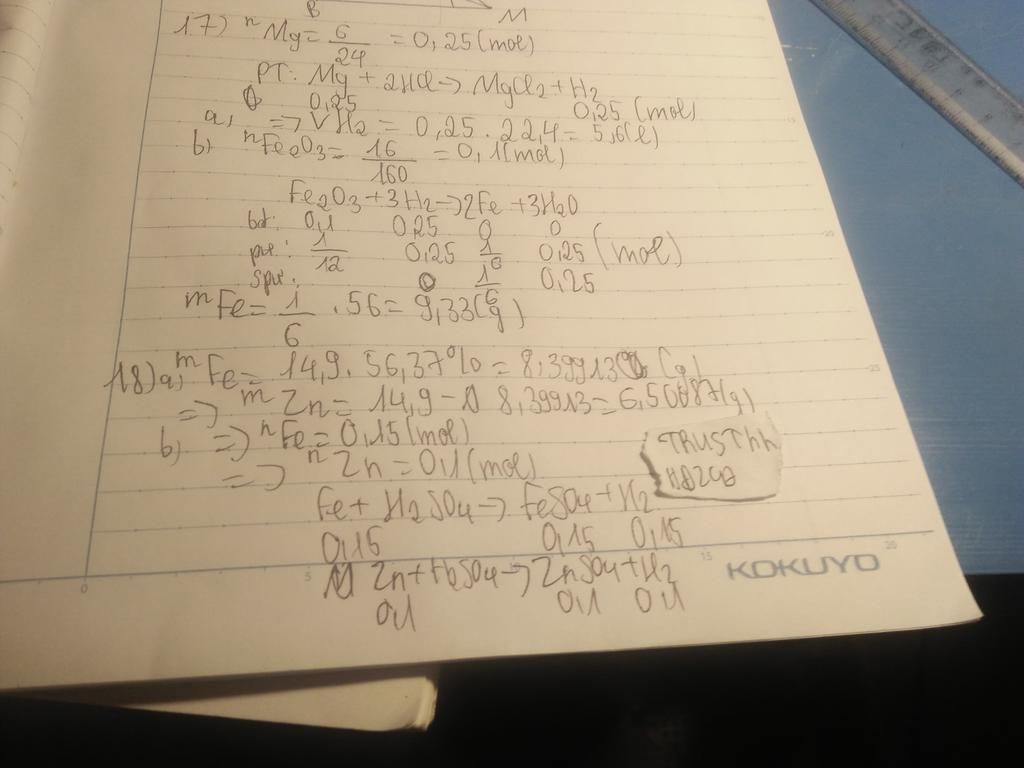 B M
17) nMg = 6/24 = 0,25 (mol)
PT: Mg + 2HCl → MgCl2 + H2
0,25 0,25 (mol)
a, => VH2 = 0,25 . 22,4 = 5,6 (l)
b) nFe2O3 = 16/160 = 0,1 (mol)
Fe2O3 + 3H2 → 2Fe + 3H2O
bđ: 0,1 0,25 0 0
pư: 1/12 0,25 1/6 0,25 (mol)
spư: 0 1/6 0,25
mFe = 1/6 . 56 = 9,33 (g)
18) a, mFe = 14,9 . 56,37% = 8,39913 (g)
=> mZn = 14,9 - 8,39913 = 6,50087 (g)
b) => nFe = 0,15 (mol)
=> nZn = 0,1 (mol)
TRUSThh
Fe + H2SO4 → FeSO4 + H2
0,15 0,15 0,15
Zn + H2SO4 → ZnSO4 + H2
0,1 0,1 0,1
0 5 15 20
KOKUYO